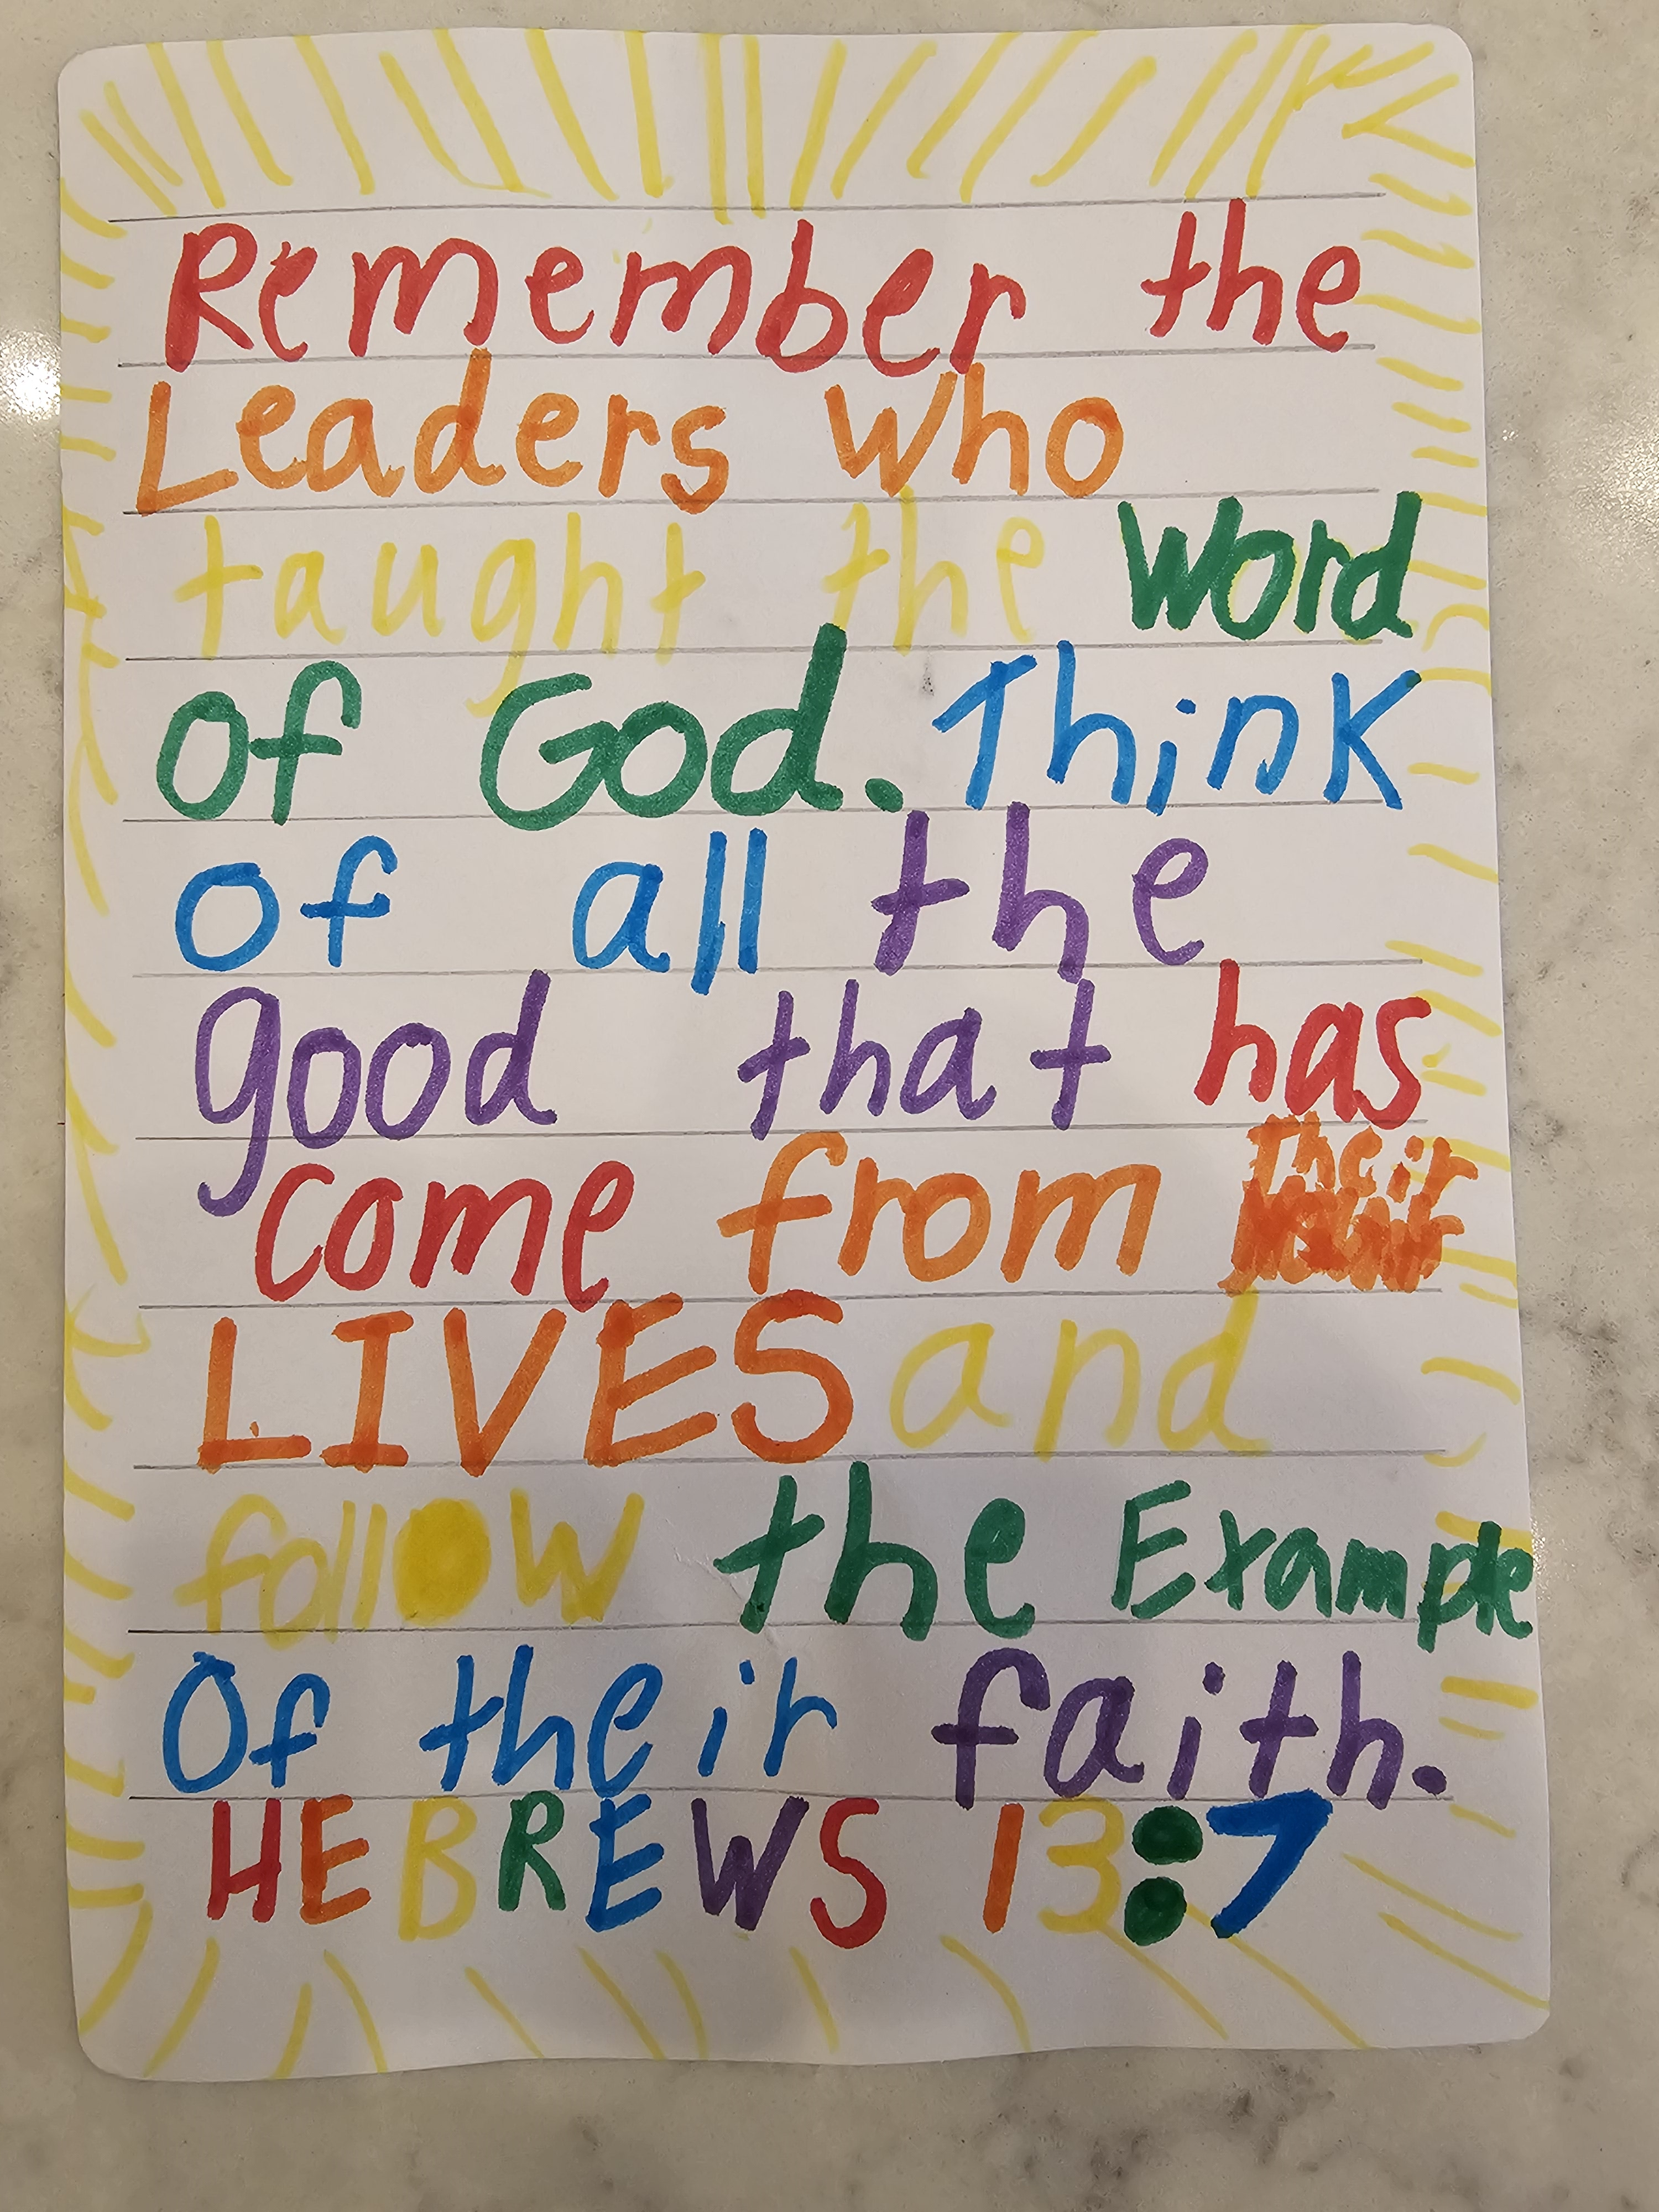 Remember the
Leaders who
taught the word
of God. Think
of all the
good that has
come from Their
LIVES and
follow the Example
Of their faith.
HEBREWS 13:7